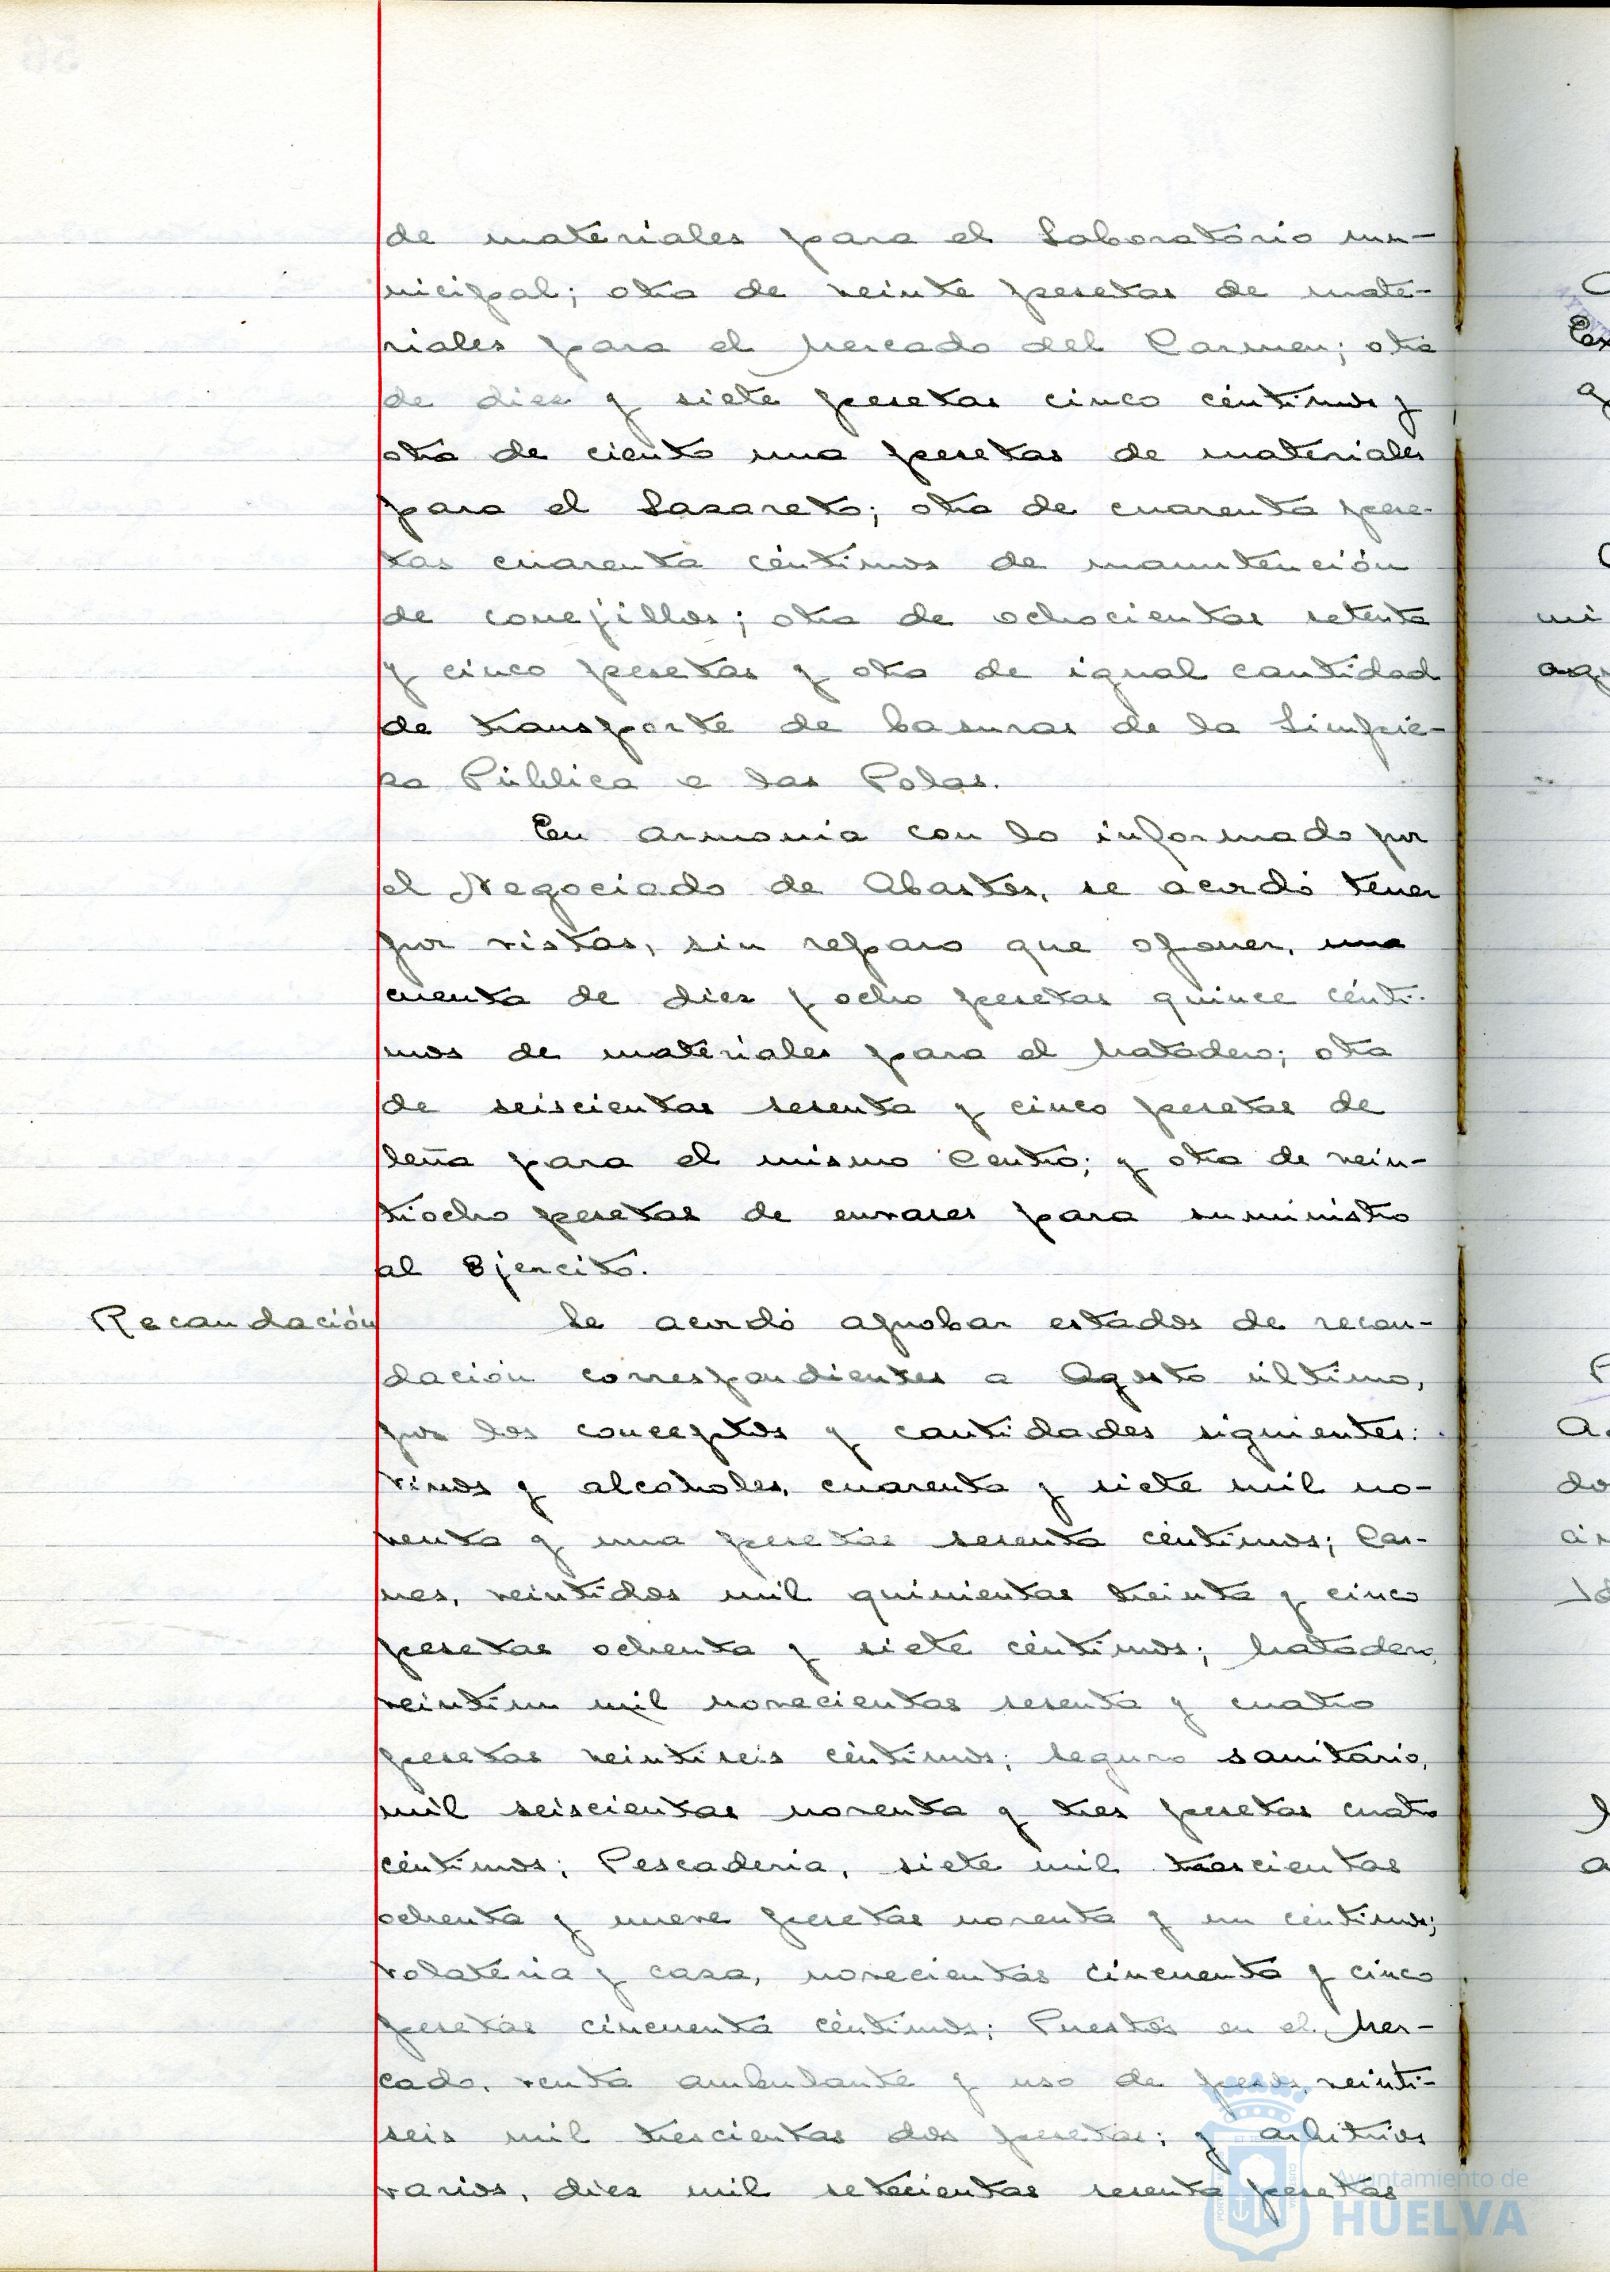 de materiales para el Laboratorio mu-
nicipal; otra de veinte pesetas de mate-
riales para el Mercado del Carmen; otra
de diez y siete pesetas cinco céntimos y
otra de ciento una pesetas de materiales
para el Lazareto; otra de cuarenta pese-
tas cuarenta céntimos de manutención
de conejillos; otra de ochocientas setenta
y cinco pesetas y otra de igual cantidad
de transporte de basuras de la Limpie-
za Pública a las Polas.
En armonia con lo informado por
el Negociado de Abastos, se acordó tener
por vistas, sin reparo que oponer, una
cuenta de diez y ocho pesetas quince cénti-
mos de materiales para el Matadero; otra
de seiscientas sesenta y cinco pesetas de
leña para el mismo Centro; y otra de vein-
tiocho pesetas de envases para suministro
al Ejercito.
Recaudación
Se acordó aprobar estados de recau-
dación correspondientes a Agosto último,
por los conceptos y cantidades siguientes:
Vinos y alcoholes, cuarenta y siete mil no-
venta y una pesetas sesenta céntimos; Car-
nes, veintidos mil quinientas treinta y cinco
pesetas ochenta y siete céntimos; Matadero,
veintiun mil novecientas sesenta y cuatro
pesetas veintiseis céntimos; Seguro sanitario,
mil seiscientas noventa y tres pesetas cuatro
céntimos; Pescaderia, siete mil trescientas
ochenta y nueve pesetas noventa y un céntimos;
Volateria y caza, novecientas cincuenta y cinco
pesetas cincuenta céntimos; Puestos en el Mer-
cado, venta ambulante y uso de pesas, veinti-
seis mil trescientas dos pesetas; y arbitrios
varios, diez mil setecientas sesenta pesetas
Ayuntamiento de
HUELVA